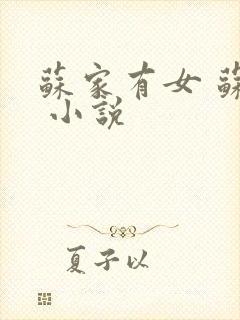 蘇家有女 蘇
小說
夏子以